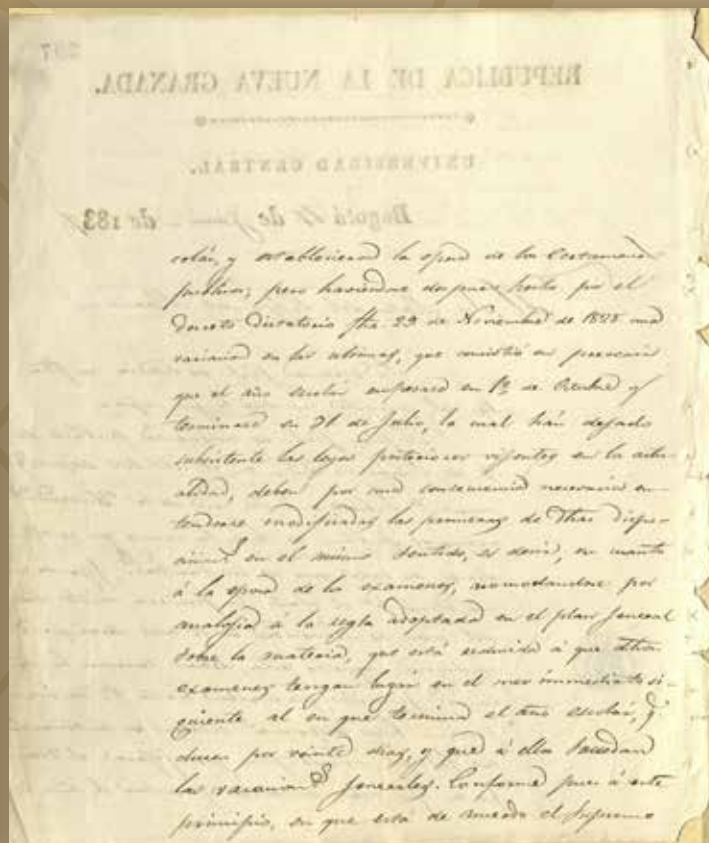 237
REPUBLICA DE LA NUEVA GRANADA.
UNIVERSIDAD CENTRAL.
Bogotá de de 183
colar, y establecieron la epoca de los Certamenes
publicos; pero haviendose despues hecho por el
Decreto Dictatorio fha. 29 de Noviembre de 1828 una
variacion en las ultimas, que consistió en
que el año escolar empesara en 1º de Octubre y
terminara en 31 de Julio, lo cual hán dejado
subsistente las leyes posteriores vijentes en la actu-
alidad, deben por una consecuencia necesaria en-
tenderse modificadas las primeras de dhas dispo-
siciones en el mismo sentido, es decir, en cuanto
á la epoca de los examenes, acomodandose por
analojia a la regla adoptada en el plan Jeneral
sobre la materia, que está reducida á que dhos
examenes tengan lugar en el mes immediato si-
guiente al en que termina el año escolar, y
duren por veinte dias, y que á ellos sucedan
las vacaciones Jenerales. Conforme pues á este
principio, en que está de acuerdo el Supremo